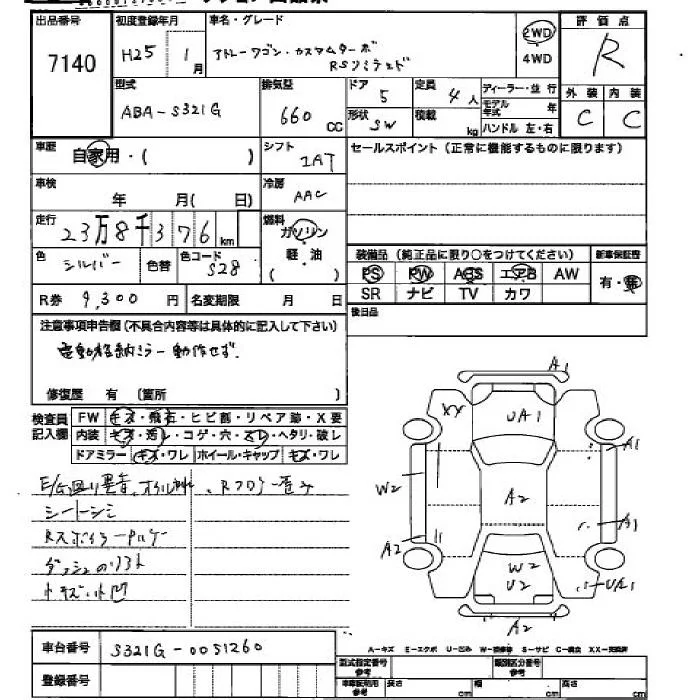 出品番号
7140
初度登録年月
H25 1月
車名・グレード
アトレーワゴン・カスタムターボ
RSリミテッド
2WD
4WD
評価点
R
型式
ABA-S321G
排気量
660 CC
ドア
5
形状
SW
定員
4人
積載
kg
ディーラー・並行
モデル年式 年
ハンドル 左・右
外装 内装
C C
車歴
自家用・( )
シフト
IAT
セールスポイント(正常に機能するものに限ります)
車検
年 月( 日)
冷房
AAC
走行
23万8千376km
燃料
ガソリン
軽・油
( )
色
シルバー
色替
色コード
S28
装備品(純正品に限り○をつけてください)
新車保証書
PS PW ABS エアB AW
有・無
SR ナビ TV カワ
R券 9,300円
名変期限 月 日
後日品
注意事項申告欄(不具合内容等は具体的に記入して下さい)
電動格納ミラー動作せず.
修復歴 有 (箇所 )
検査員
記入欄
FW キズ・飛石・ヒビ割・リペア跡・X要
内装 キズ・汚レ・コゲ・穴・スレ・ヘタリ・破レ
ドアミラー キズ・ワレ ホイール・キャップ キズ・ワレ
シートシミ
小キズ小凹
A1
XX
UA1
A1
W2
A2
A1
A2
W2
U2
UA1
A2
車台番号
S321G-0051260
登録番号
A-キズ E-エクボ U-凹み W-補修跡 S-サビ C-腐食 XX-交換済
型式指定番号
参考
類別区分番号
参考
長さ cm
幅 cm
高さ cm